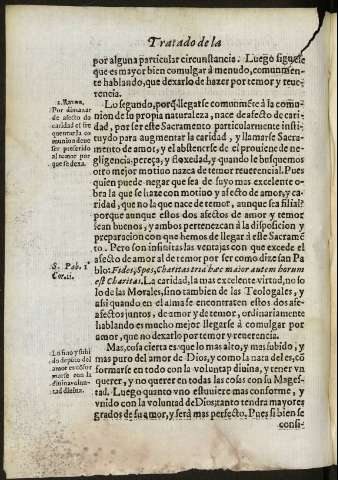 Tratado de la
por alguna particular circunstancia. Luego siguese
que es mayor bien comulgar à menudo, comunmen-
te hablando, que dexarlo de hazer por temor y reue-
rencia.
2. Razon,
Por dimanar
de afecto de
caridad el fre
quentar la co
munion deue
ser preferido
al temor por
que se dexa.
Lo segundo, porq̃ llegarse comunmẽte à la comu-
nion de su propia naturaleza, nace de afecto de cari-
dad, por ser este Sacramento particularmente insti-
tuydo para augmentar la caridad, y llamarse Sacra-
mento de amor, y el abstenerse de el prouiene de ne-
gligencia. pereça, y floxedad, y quando le busquemos
otro mejor motiuo nazca de temor reuerencial. Pues
quien puede negar que sea de suyo mas excelente o-
bra la que se haze con motiuo y afecto de amor, y ca-
ridad, que no la que nace de temor, aunque sea filial?
porque aunque estos dos afectos de amor y temor
sean buenos, y ambos pertenezcan à la disposicion y
preparacion con que hemos de llegar à este Sacramẽ
to. Pero son infinitas las ventajas con que excede el
afecto de amor al de temor por ser como dize san Pa
S. Pab. 1
Cor.
blo: Fides, Spes, Charitas tria hæc maior autem horum
est Charitas. La caridad, la mas excelente virtud, no so
lo de las Morales, sino tambien de las Teologales, y
assi quando en el alma se encontraten estos dos afe-
afectos juntos, de amor y de temor, ordinariamente
hablando es mucho mejor llegarse à comulgar por
amor, que no dexarlo por temor y reuerencia.
Lo fino y subi
do de puro del
amor es cõfor
marse con la
diuina volun-
tad diuina.
Mas, cosa cierta es que lo mas alto, y mas subido, y
mas puro del amor de Dios, y como la nata del es, cõ
formarse en todo con la voluntap diuina, y tener vn
querer, y no querer en todas las cosas con su Mages-
tad. Luego quanto vno estuuiere mas conforme, y
vnido con la voluntad de Dios tanto tendra mayores
grados de su amor, y serà mas perfecto. Pues si bien se
consi-